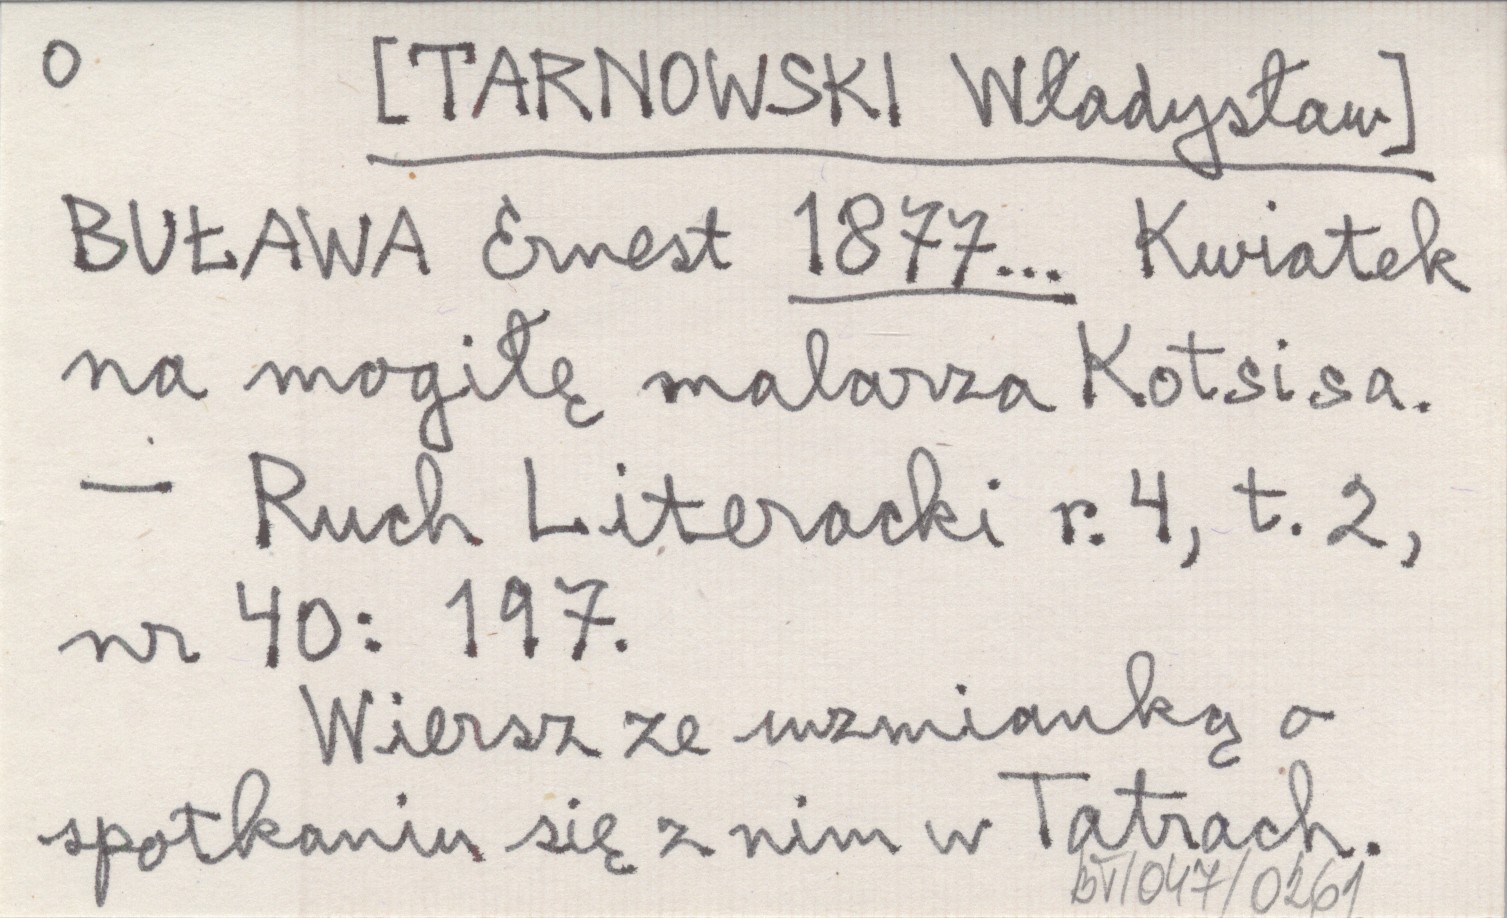 O [TARNOWSKI Władysław]
BUŁAWA Ernest 1877... Kwiatek
na mogiłę malarza Kotsisa.
— Ruch Literacki r. 4, t. 2,
nr 40: 197.
Wiersz ze wzmianką o
spotkaniu się z nim w Tatrach.
BT/047/0261